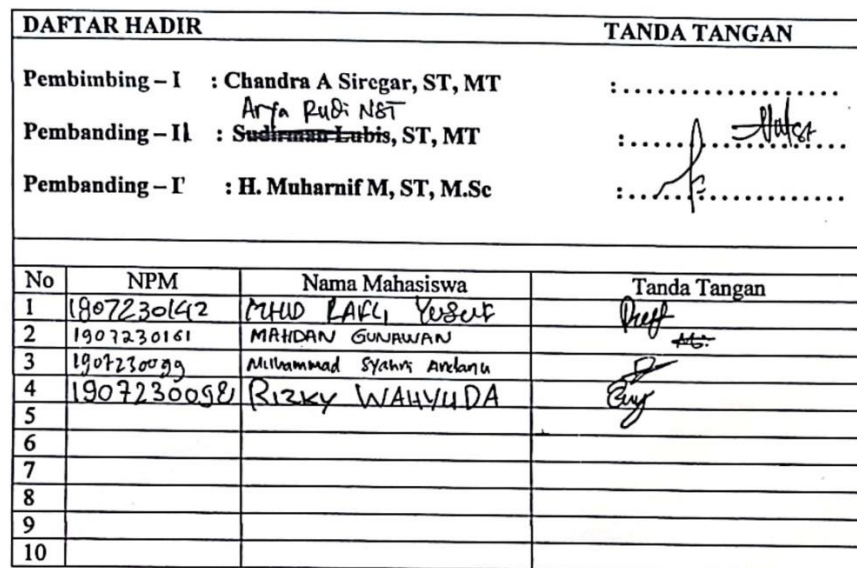 DAFTAR HADIR TANDA TANGAN
Pembimbing – I : Chandra A Siregar, ST, MT :
Arfa Rudi NST
Pembanding – II : Sudirman Lubis, ST, MT :
Pembanding – I : H. Muharnif M, ST, M.Sc :
No NPM Nama Mahasiswa Tanda Tangan
1 1807230142 MHD RAFLI Yusuf
2 1907230161 MAHDAN GUNAWAN
3 1907230099 Muhammad Syahri
4 1907230098 RIZKY WAHYUDA
5
6
7
8
9
10